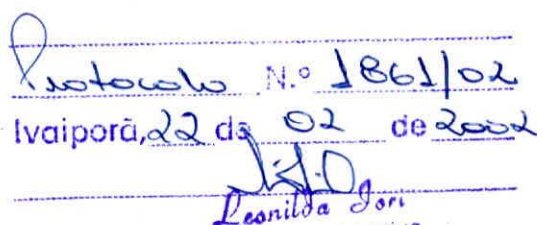 Protocolo N.º 1861/02
Ivaiporã, 22 de 02 de 2002
Leonilda Jori